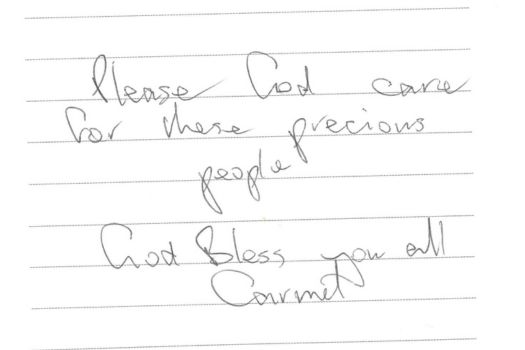 Please God care
for these precious
people
God Bless you all
Carmel